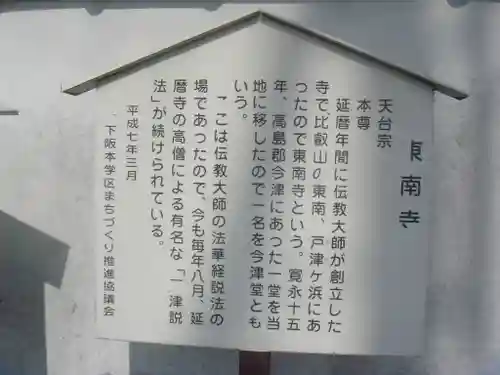 東南寺
天台宗
本尊
延暦年間に伝教大師が創立した
寺で、比叡山の東南、戸津ヶ浜にあ
ったので東南寺という。寛永十五
年、高島郡今津にあった一堂を当
地に移したので一名を今津堂とも
いう。
ここは伝教大師の法華経説法の
場であったので、今も毎年八月、延
暦寺の高僧による有名な「一津説
法」が続けられている。
平成七年三月
下阪本学区まちづくり推進協議会